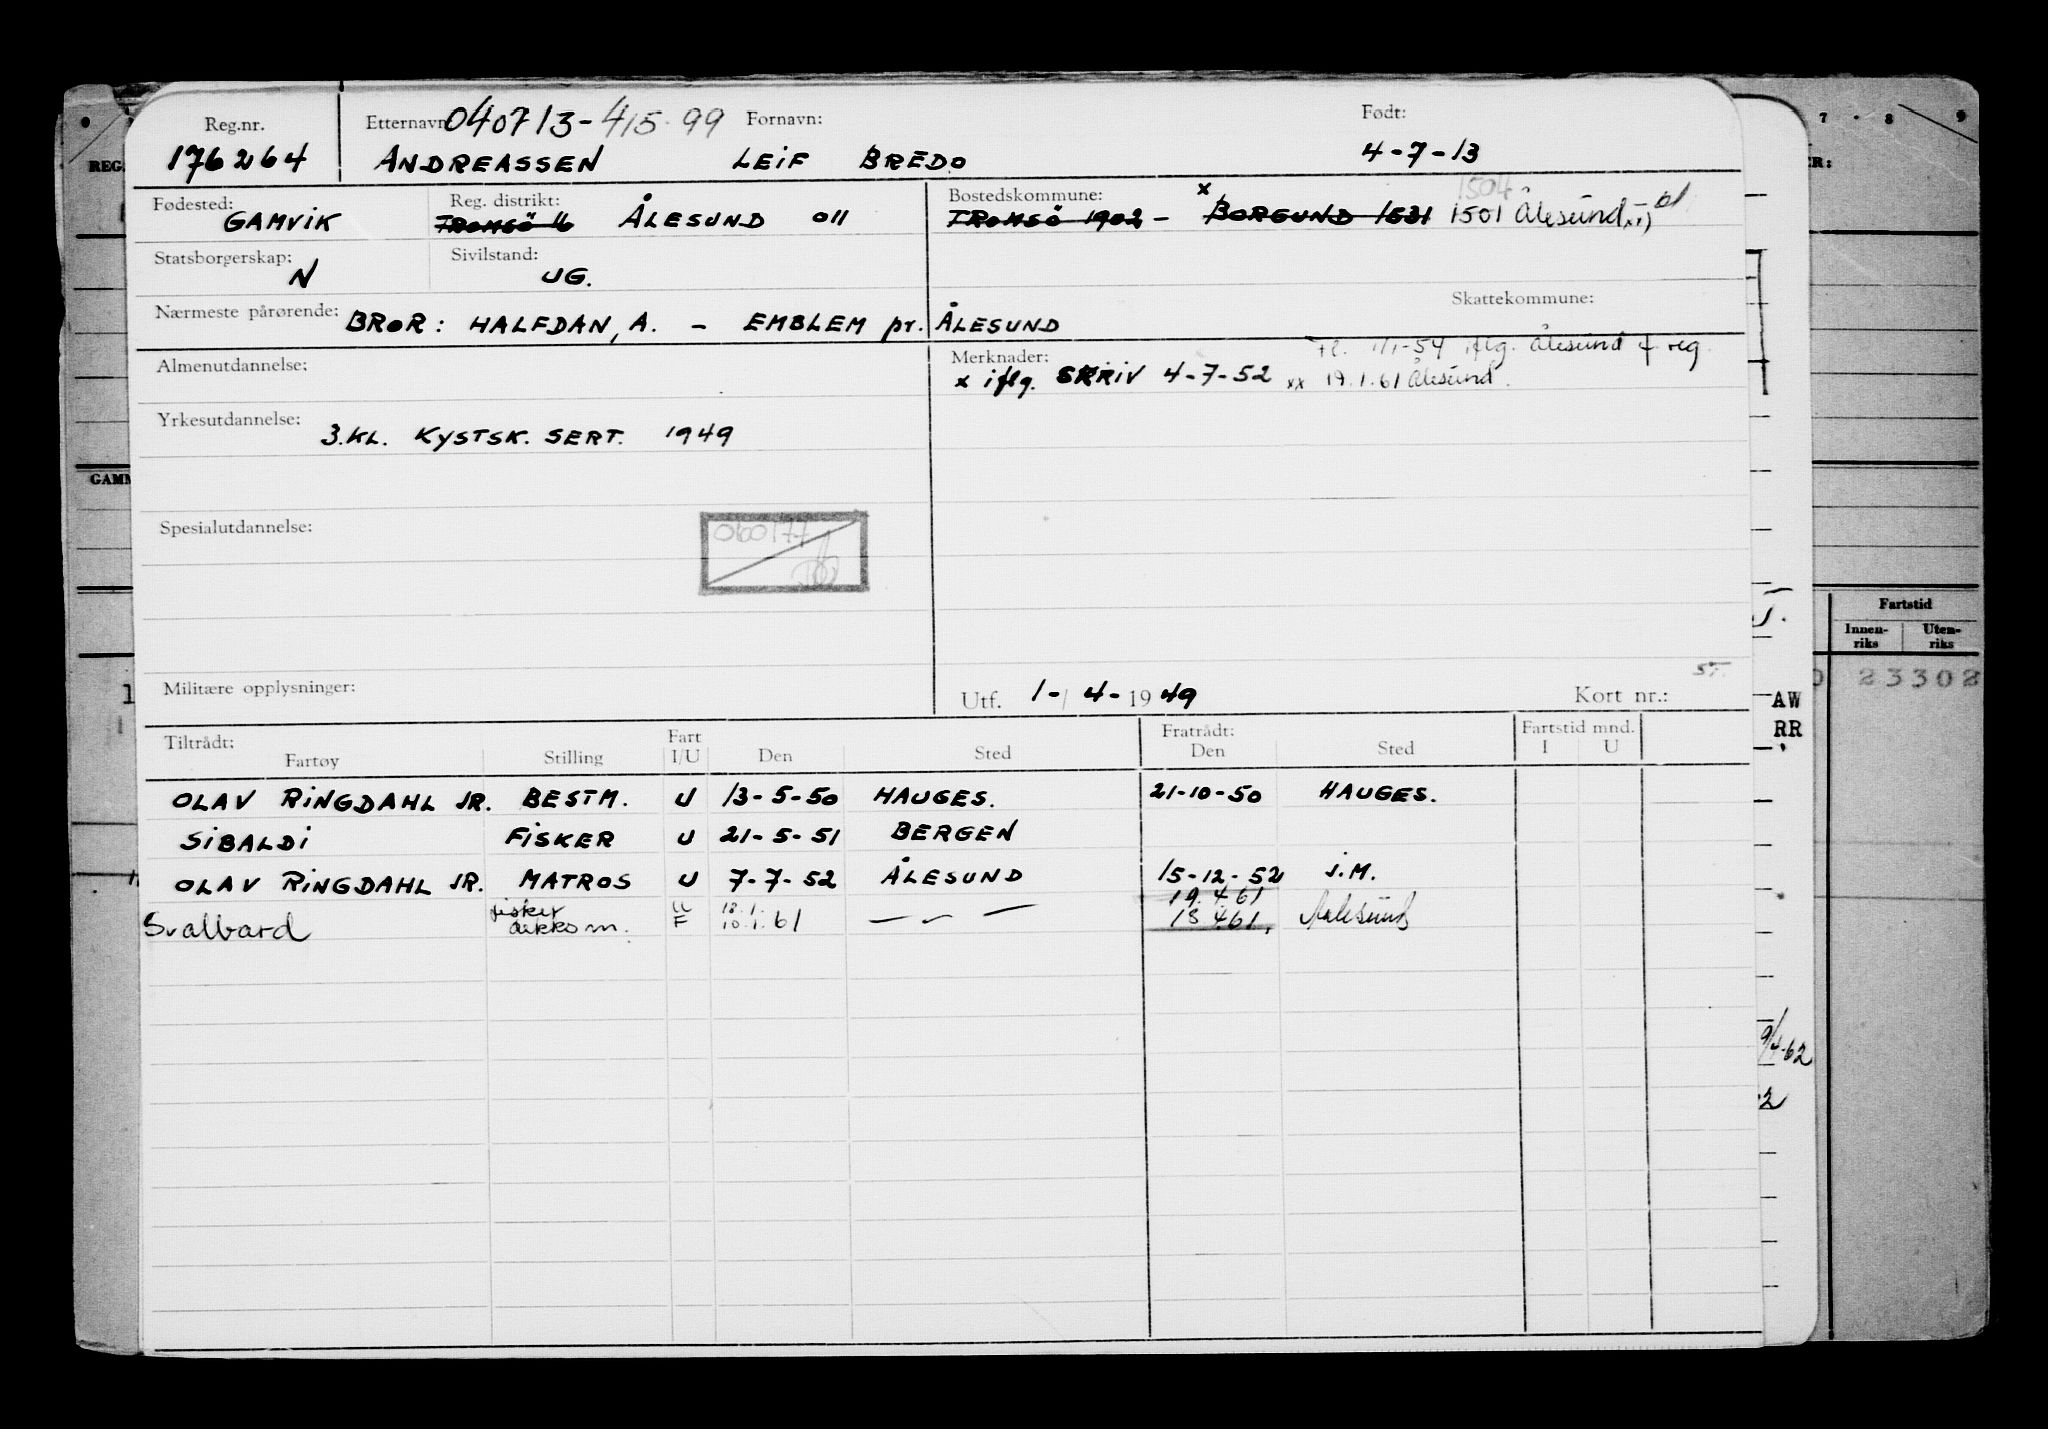 Reg.nr. Etternavn 040713-415 99 Fornavn: Født:
176264 ANDREASSEN LEIF BREDO 4-7-13
Fødested: Reg. distrikt: Bostedskommune: x 1504
GAMVIK TROMSÖ 16 ÅLESUND 011 TROMSÖ 1902 - BORGUND 1531 1501 Ålesund xx)
Statsborgerskap: Sivilstand:
N UG.
Nærmeste pårørende: BROR: HALFDAN, A. - EMBLEM pr. ÅLESUND Skattekommune:
Almenutdannelse: Merknader: 1/1-54 iflg. Ålesund f. reg.
x iflg. SKRIV 4-7-52 xx 19.1.61 Ålesund.
Yrkesutdannelse:
3.KL. KYSTSK. SERT. 1949
Spesialutdannelse: 060177
Militære opplysninger: Utf. 1-4-1949 Kort nr.:
Tiltrådt: Fart Fratrådt: Fartstid mnd.
Fartøy Stilling I/U Den Sted Den Sted I U
OLAV RINGDAHL JR. BESTM. U 13-5-50 HAUGES. 21-10-50 HAUGES.
SIBALDI FISKER U 21-5-51 BERGEN
OLAV RINGDAHL JR. MATROS U 7-7-52 ÅLESUND 15-12-52 I.M.
fisker U 18.1. 19.4.61
Svalbard dekksm. F 10.1.61 — — — 18.4.61. Aalesund
REG.
GAMM
7 · 8 9
ER:
Fartstid
Innen-
riks
Uten-
riks
23302
AW
RR
9/4-62